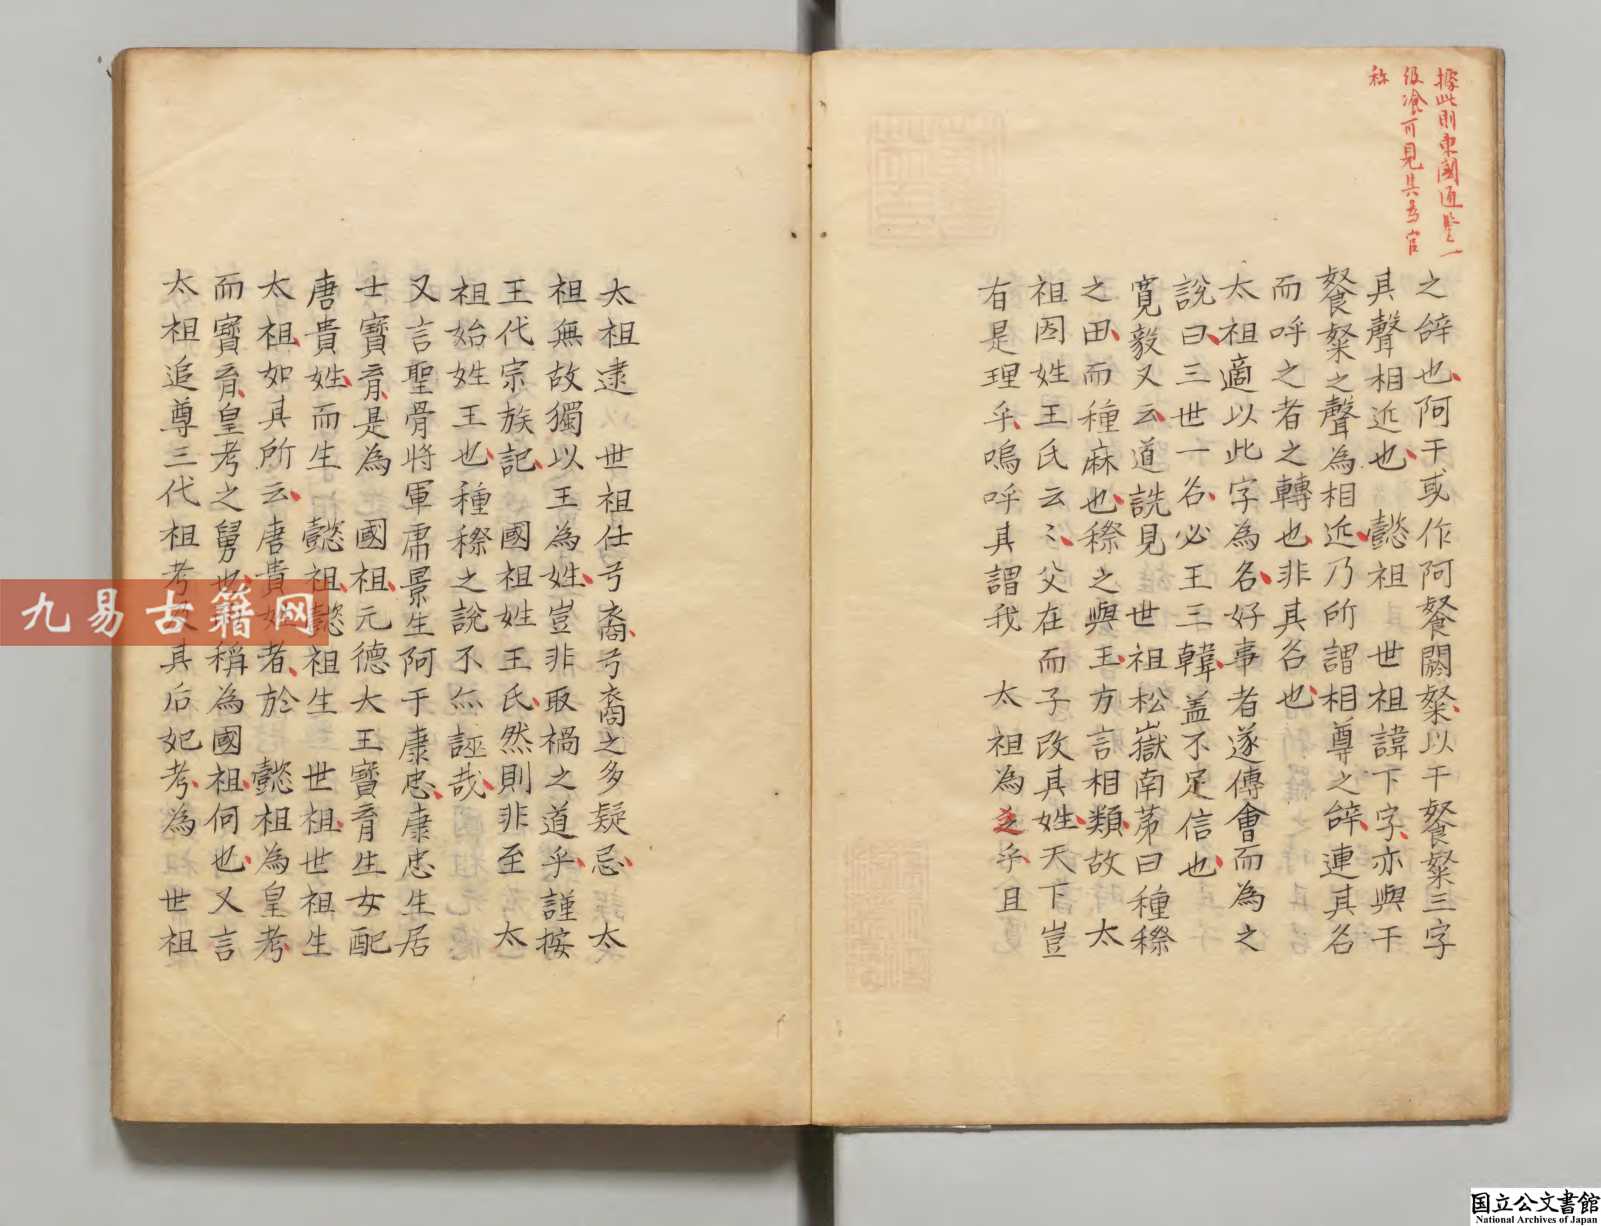 據此則東國通鑒一
級飡可見其為官
称
之辤也阿干或作阿餐閼粲以干餐粲三字
其聲相近也 懿祖 世祖諱下字亦與干
餐粲之聲為相近乃所謂相尊之辤連其名
而呼之者之轉也非其名也
太祖適以此字為名好事者遂傳會而為之
說曰三世一名必王三韓盖不足信也
寛毅又云道詵見世祖松嶽南第曰種穄
之田而種麻也穄之與王方言相類故 太
祖因姓王氏云〻父在而子改其姓天下豈
有是理乎嗚呼其謂我 太祖為之乎且
太祖逮 世祖仕弓裔弓裔之多疑忌 太
祖無故獨以王為姓豈非取禍之道乎謹按
王代宗族記 國祖姓王氏然則非至 太
祖始姓王也種穄之說不亦誣哉
又言聖骨將軍虎景生阿于康忠康忠生居
士寳育是為 國祖元德大王寳育生女配
唐貴姓而生 懿祖懿祖生 世祖世祖生
太祖如其所云唐貴姓者於 懿祖為皇考
而寳育皇考之舅也 稱為國祖何也又言
太祖追尊三代祖考及其后妃考為 世祖
九易古籍网
国立公文書館
National Archives of Japan